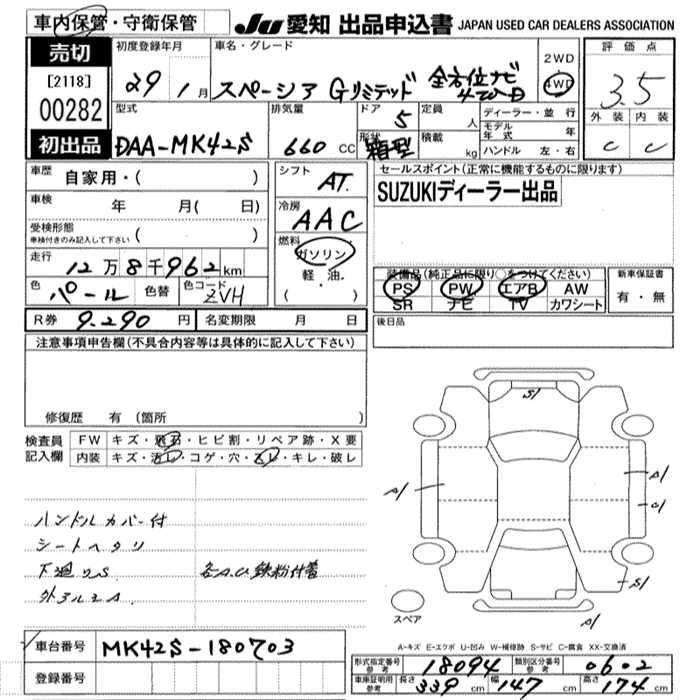 車内保管・守衛保管
JU 愛知 出品申込書 JAPAN USED CAR DEALERS ASSOCIATION
売切
[2118]
00282
初出品
初度登録年月
29年1月
車名・グレード
スペーシア Gリミテッド 全方位ナビ
2WD
4WD
評価点
3.5
外装 内装
C C
型式
DAA-MK42S
排気量
660 CC
ドア 5
形状 箱型
定員 人
積載 kg
ディーラー・並行
モデル年式 年
ハンドル 左・右
車歴 自家用・( )
車検 年 月( 日)
受検形態
車検付きのみ記入して下さい ( )
走行 12万8千962km
色 パール 色替 色コード ZVH
シフト AT
冷房 AAC
燃料 ガソリン
軽・油
( )
セールスポイント(正常に機能するものに限ります)
SUZUKIディーラー出品
装備品(純正品に限り○をつけてください)
PS PW エアB AW
SR ナビ TV カワシート
新車保証書
有・無
R券 9,290円 名変期限 月 日
後日品
注意事項申告欄(不具合内容等は具体的に記入して下さい)
修復歴 有(箇所 )
検査員記入欄
FW キズ・飛石・ヒビ割・リペア跡・X要
内装 キズ・汚レ・コゲ・穴・スレ・キレ・破レ
ハンドルカバー付
シートヘタリ
下廻りS 各A.U鉄粉付着
スペア
A-キズ E-エクボ U-凹み W-補修跡 S-サビ C-腐食 XX-交換済
車台番号 MK42S-180703
登録番号
形式指定番号 参考 18094 類別区分番号 参考 0602
車庫証明用 参考 長さ 339cm 幅 147cm 高さ 174cm